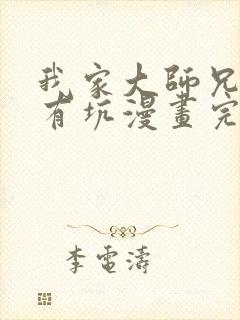 我家大師兄
有坑漫畫完
李電濤